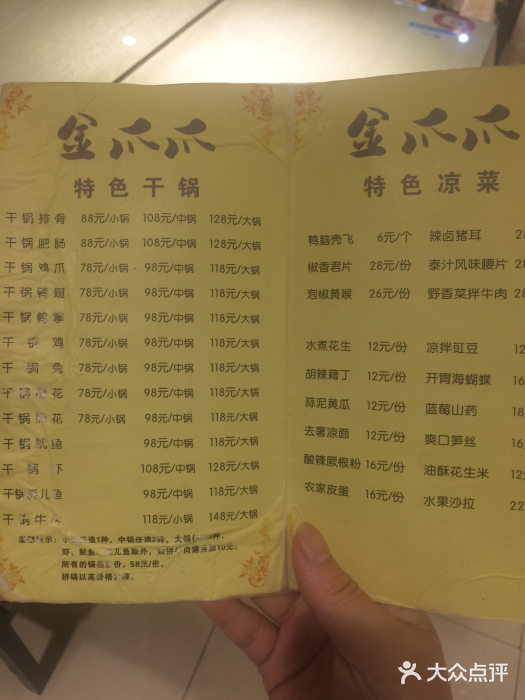 金爪爪
特色干锅
干锅排骨 88元/小锅 108元/中锅 128元/大锅
干锅肥肠 88元/小锅 108元/中锅 128元/大锅
干锅鸡爪 78元/小锅 98元/中锅 118元/大锅
干锅鸭翅 78元/小锅 98元/中锅 118元/大锅
干锅鸭掌 78元/小锅 98元/中锅 118元/大锅
干锅鸡 78元/小锅 98元/中锅 118元/大锅
干锅兔 78元/小锅 98元/中锅 118元/大锅
干锅花 78元/小锅 98元/中锅 118元/大锅
干锅花 78元/小锅 98元/中锅 118元/大锅
干锅鱿鱼 98元/中锅 118元/大锅
干锅虾 108元/中锅 128元/大锅
干锅儿鱼 98元/中锅 118元/大锅
干锅牛 118元/小锅 148元/大锅
所有的锅品 58元/份。
拼锅以高价格为准。
金爪爪
特色凉菜
鸭脑壳飞 6元/个 辣卤猪耳
椒香君片 28元/份 泰汁风味腰片
泡椒黄喉 26元/份 野香菜拌牛肉
水煮花生 12元/份 凉拌豇豆
胡辣藕丁 12元/份 开胃海蝴蝶
蒜泥黄瓜 12元/份 蓝莓山药
去署凉面 12元/份 爽口笋丝
酸辣蕨根粉 16元/份 油酥花生米
农家皮蛋 16元/份 水果沙拉
大众点评